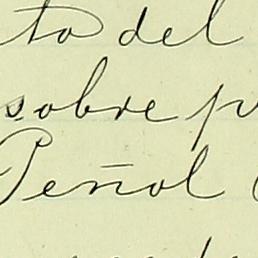 to del
sobre p
Peñol